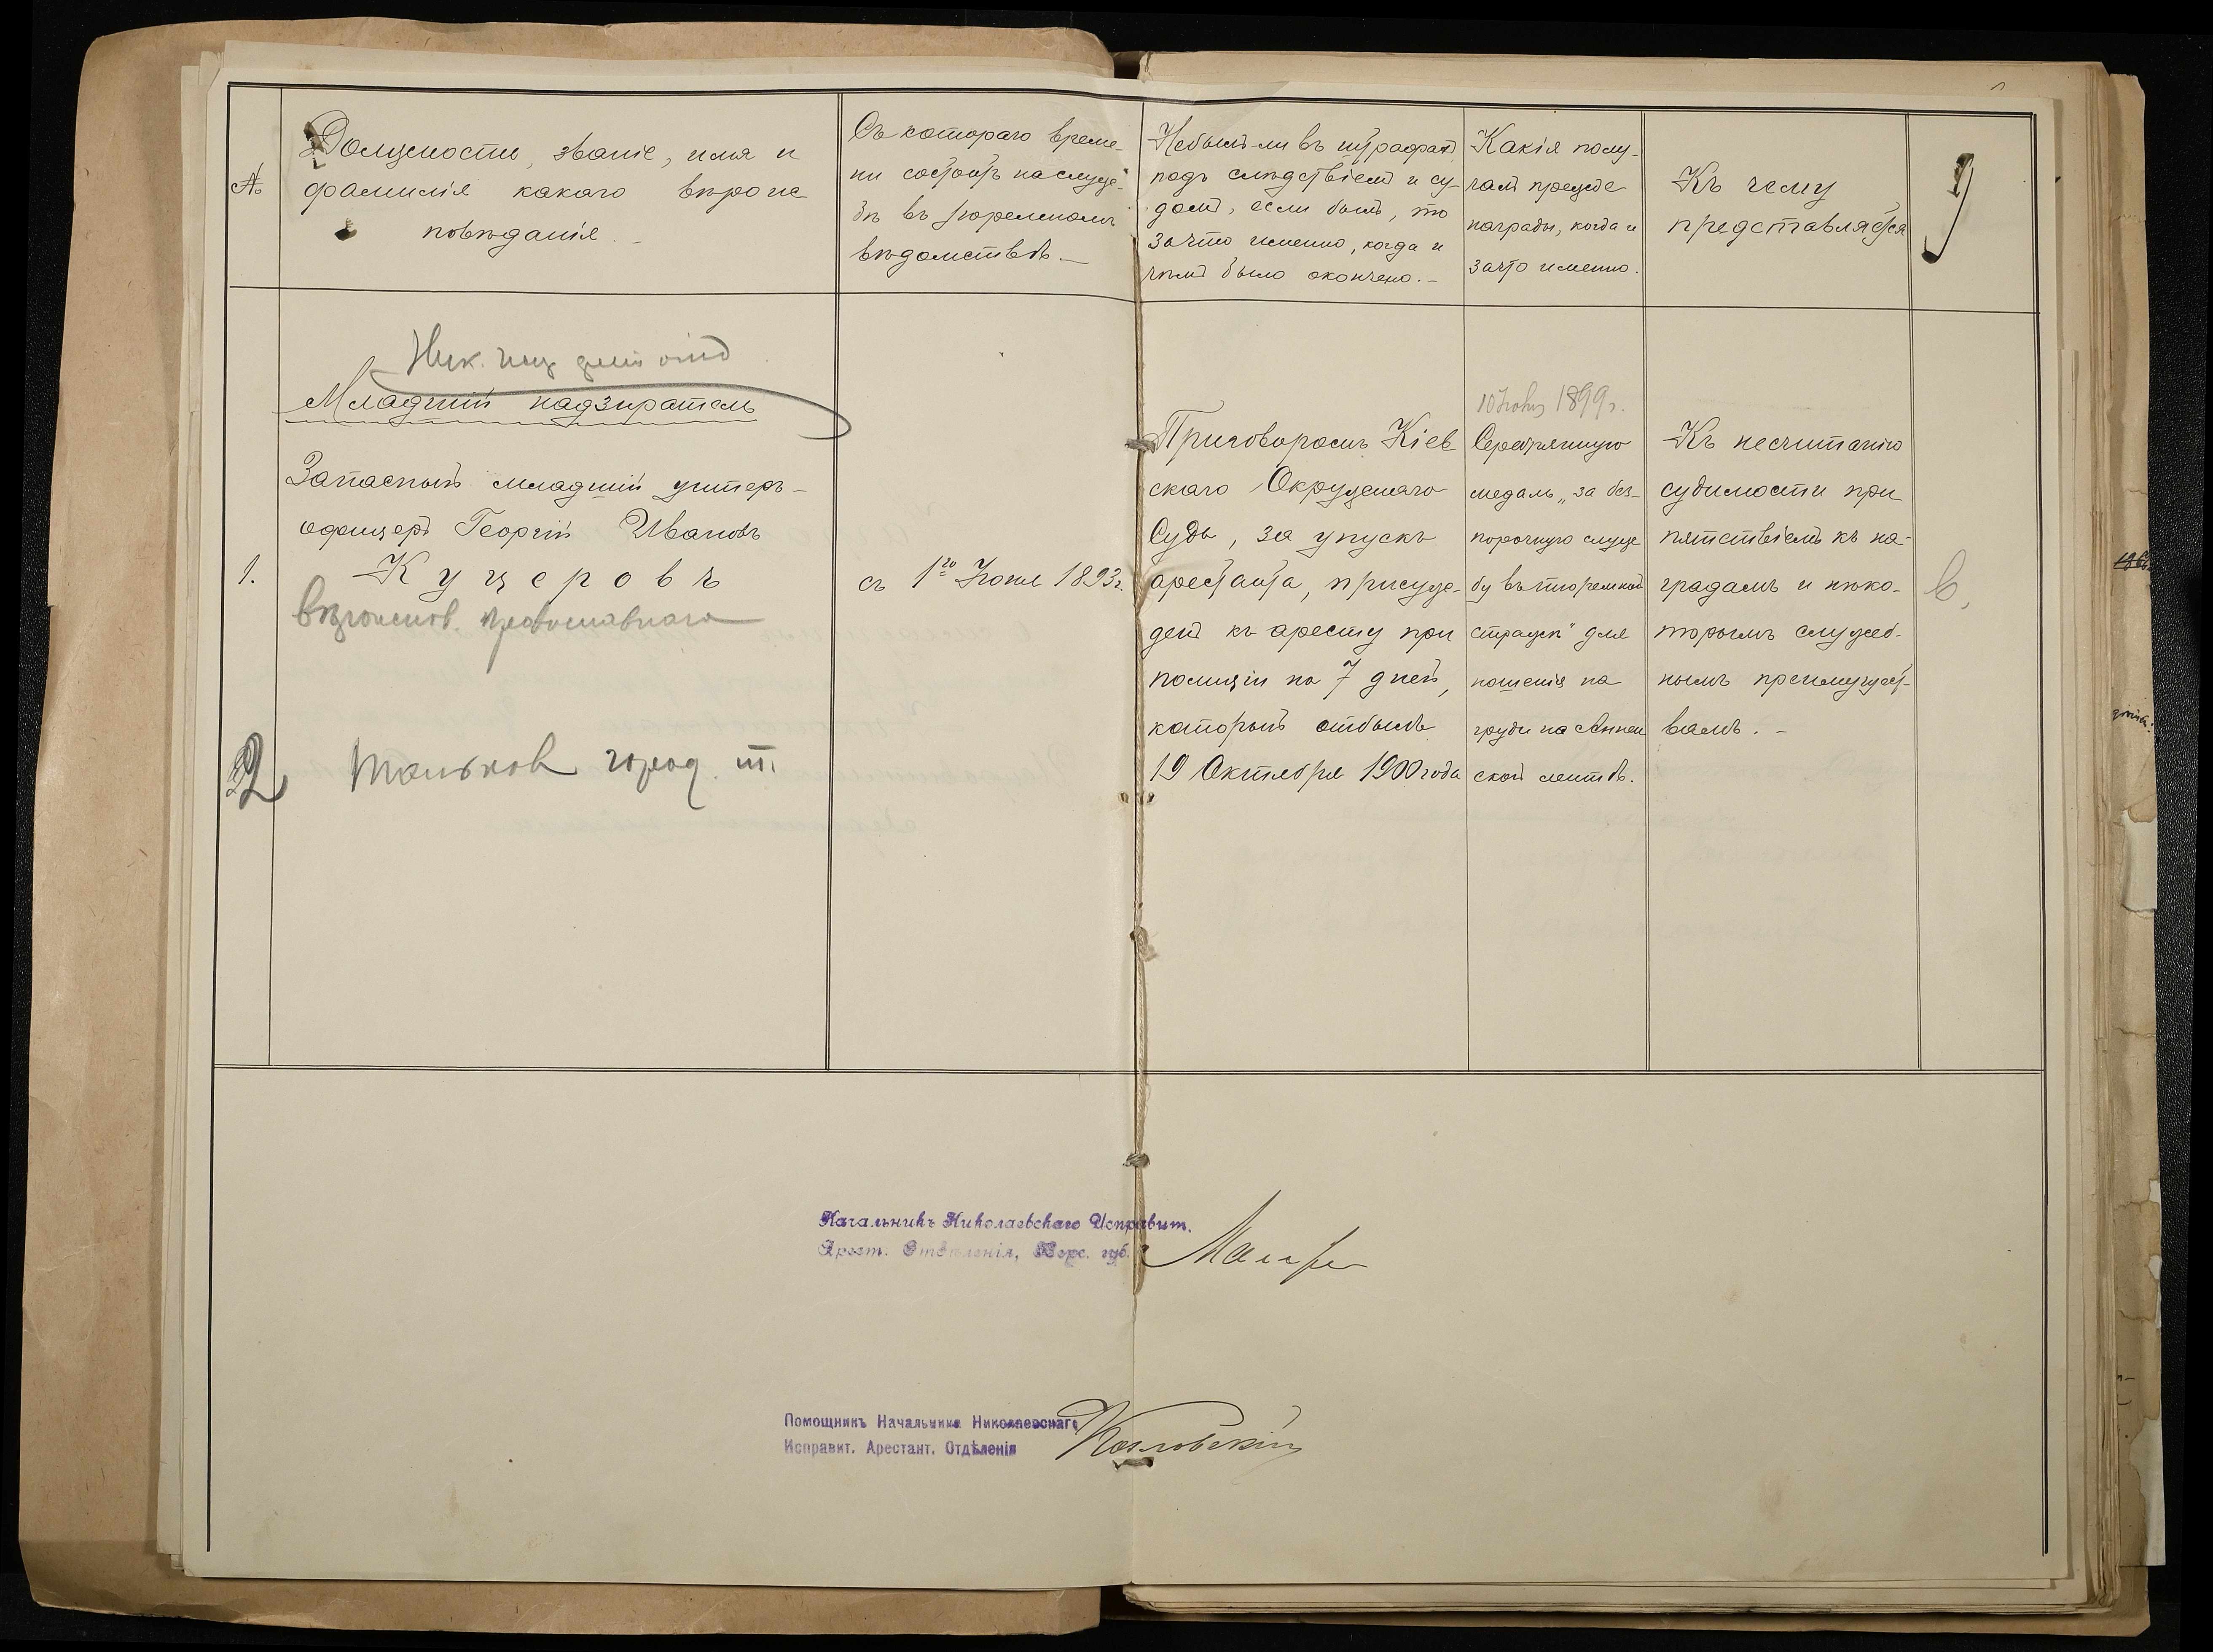 №
Должность, званіе, имя и
фамилія какого вѣроис
повѣданія.-
Съ котораго време-
ни состоитъ на служ-
бѣ въ тюремномъ
вѣдомствѣ.-
Небылъ-ли въ штрафахъ
подъ слѣдствіемъ и су-
домъ, если былъ, то
за что именно, когда и
чѣмъ было окончено.-
Какія полу-
чалъ прежде
награды, когда и
за что именно.
Къ чему
представляется
Ник.
Младшій надзиратель
Запасный младшій унтеръ-
офицеръ Георгій Ивановъ
1.
Куцеровъ
православнаго
съ 1го Іюня 1893г.
Приговоромъ Кіев
скаго Окружнаго
Суда, за упускъ
арестанта, присуж-
денъ къ аресту при
полиціи на 7 дней,
который отбылъ
19 Октября 1900 года
1899г.
Серебрянную
медаль „за без-
порочную служ
бу въ тюремной
стражѣ" для
ношенія на
груди на Аннен
ской лентѣ.
Къ несчитанію
судимости при
пятствіемъ къ на-
градамъ и нѣко-
торымъ служеб-
нымъ преимущест-
вамъ.-
в.
2
город. т.
Начальникъ Николаевскаго Исправит.
Арест. Отдѣленія, Херс. губ.
Помощникъ Начальника Николаевскаго
Исправит. Арестант. Отдѣленія
Козловскій